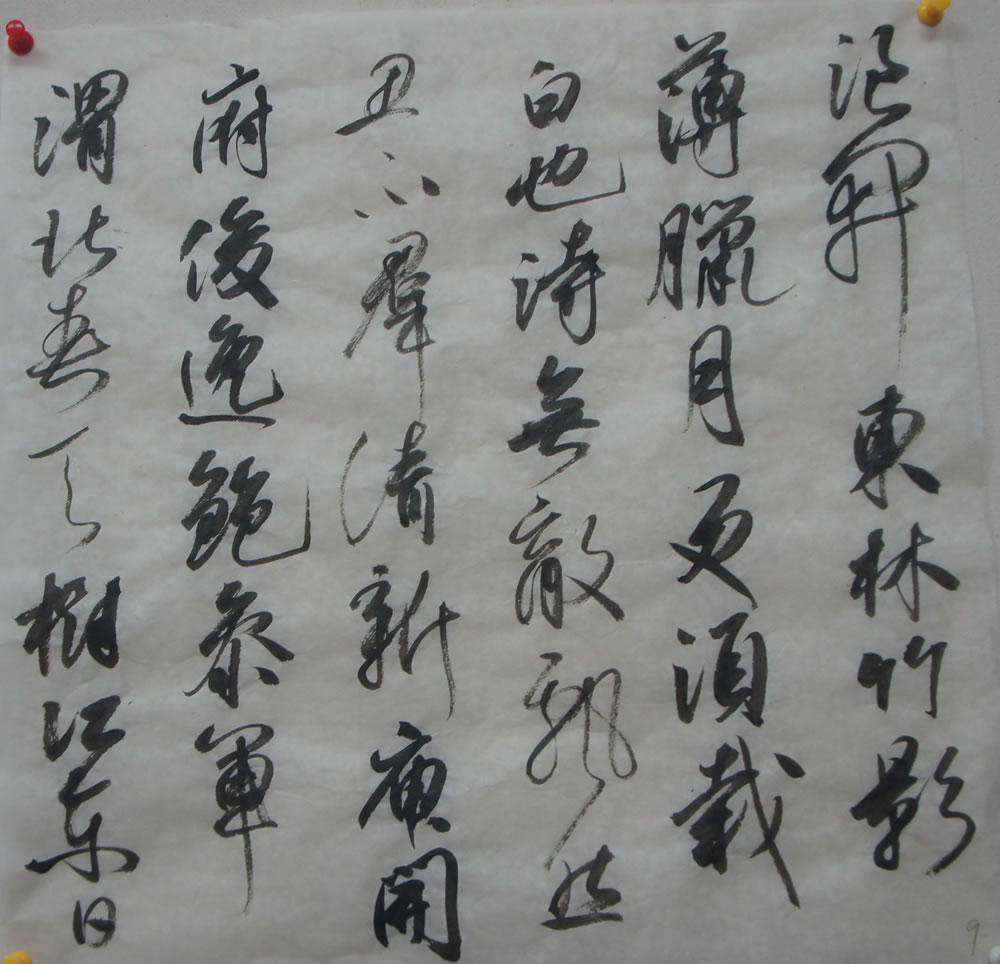 浪翻東林竹影
薄臘月更須栽
白也詩無敵飄然
思不群清新庾開
府俊逸鮑參軍
渭北春天樹江東日
9